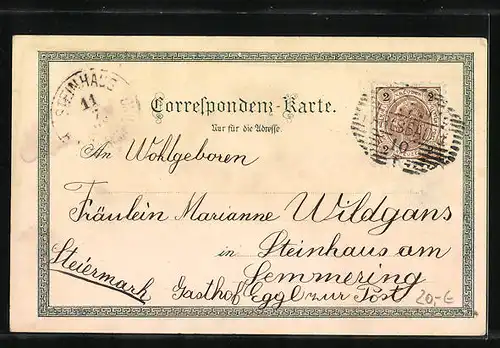 STEINHAUS
11
Correspondenz-Karte.
Nur für die Adresse.
2 2
10
An Wohlgeboren
Fräulein Marianne Wildgans
in Steinhaus am
Semmering
Steiermark
Gasthof Eggl zur Post
20,-€